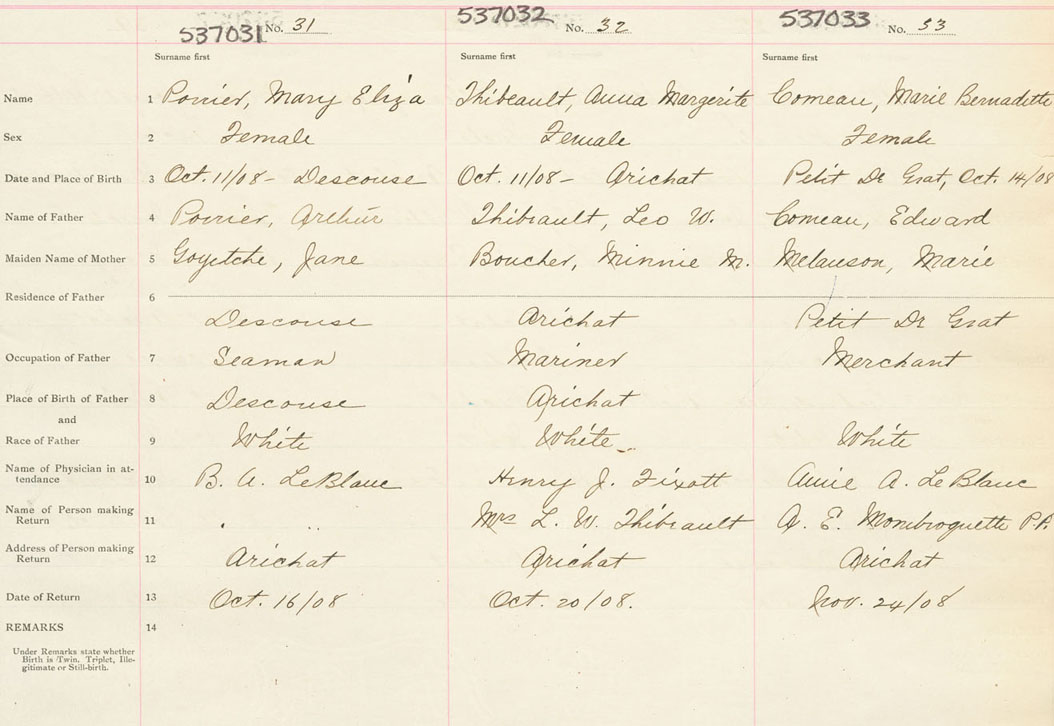 537031 No. 31 537032 No. 32 537033 No. 33
Surname first Surname first Surname first
Name 1 Poirier, Mary Eliza Thibeault, Anna Margerite Comeau, Marie Bernadette
Sex 2 Female Female Female
Date and Place of Birth 3 Oct. 11/08 - Descouse Oct. 11/08 - Arichat Petit De Grat, Oct. 14/08
Name of Father 4 Poirier, Arthur Thibeault, Leo W. Comeau, Edward
Maiden Name of Mother 5 Goyetche, Jane Boucher, Minnie M. Melanson, Marie
Residence of Father 6
Descouse Arichat Petit De Grat
Occupation of Father 7 Seaman Mariner Merchant
Place of Birth of Father 8 Descouse Arichat
and
Race of Father 9 White White White
Name of Physician in at-
tendance 10 B. A. LeBlanc Henry J. Fixott Annie A. LeBlanc
Name of Person making
Return 11 " " Mrs L. W. Thibeault A. E. Mombroquette P.P.
Address of Person making
Return 12 Arichat Arichat Arichat
Date of Return 13 Oct. 16/08 Oct. 20/08. Nov. 24/08
REMARKS 14
Under Remarks state whether
Birth is Twin. Triplet, Ille-
gitimate or Still-birth.